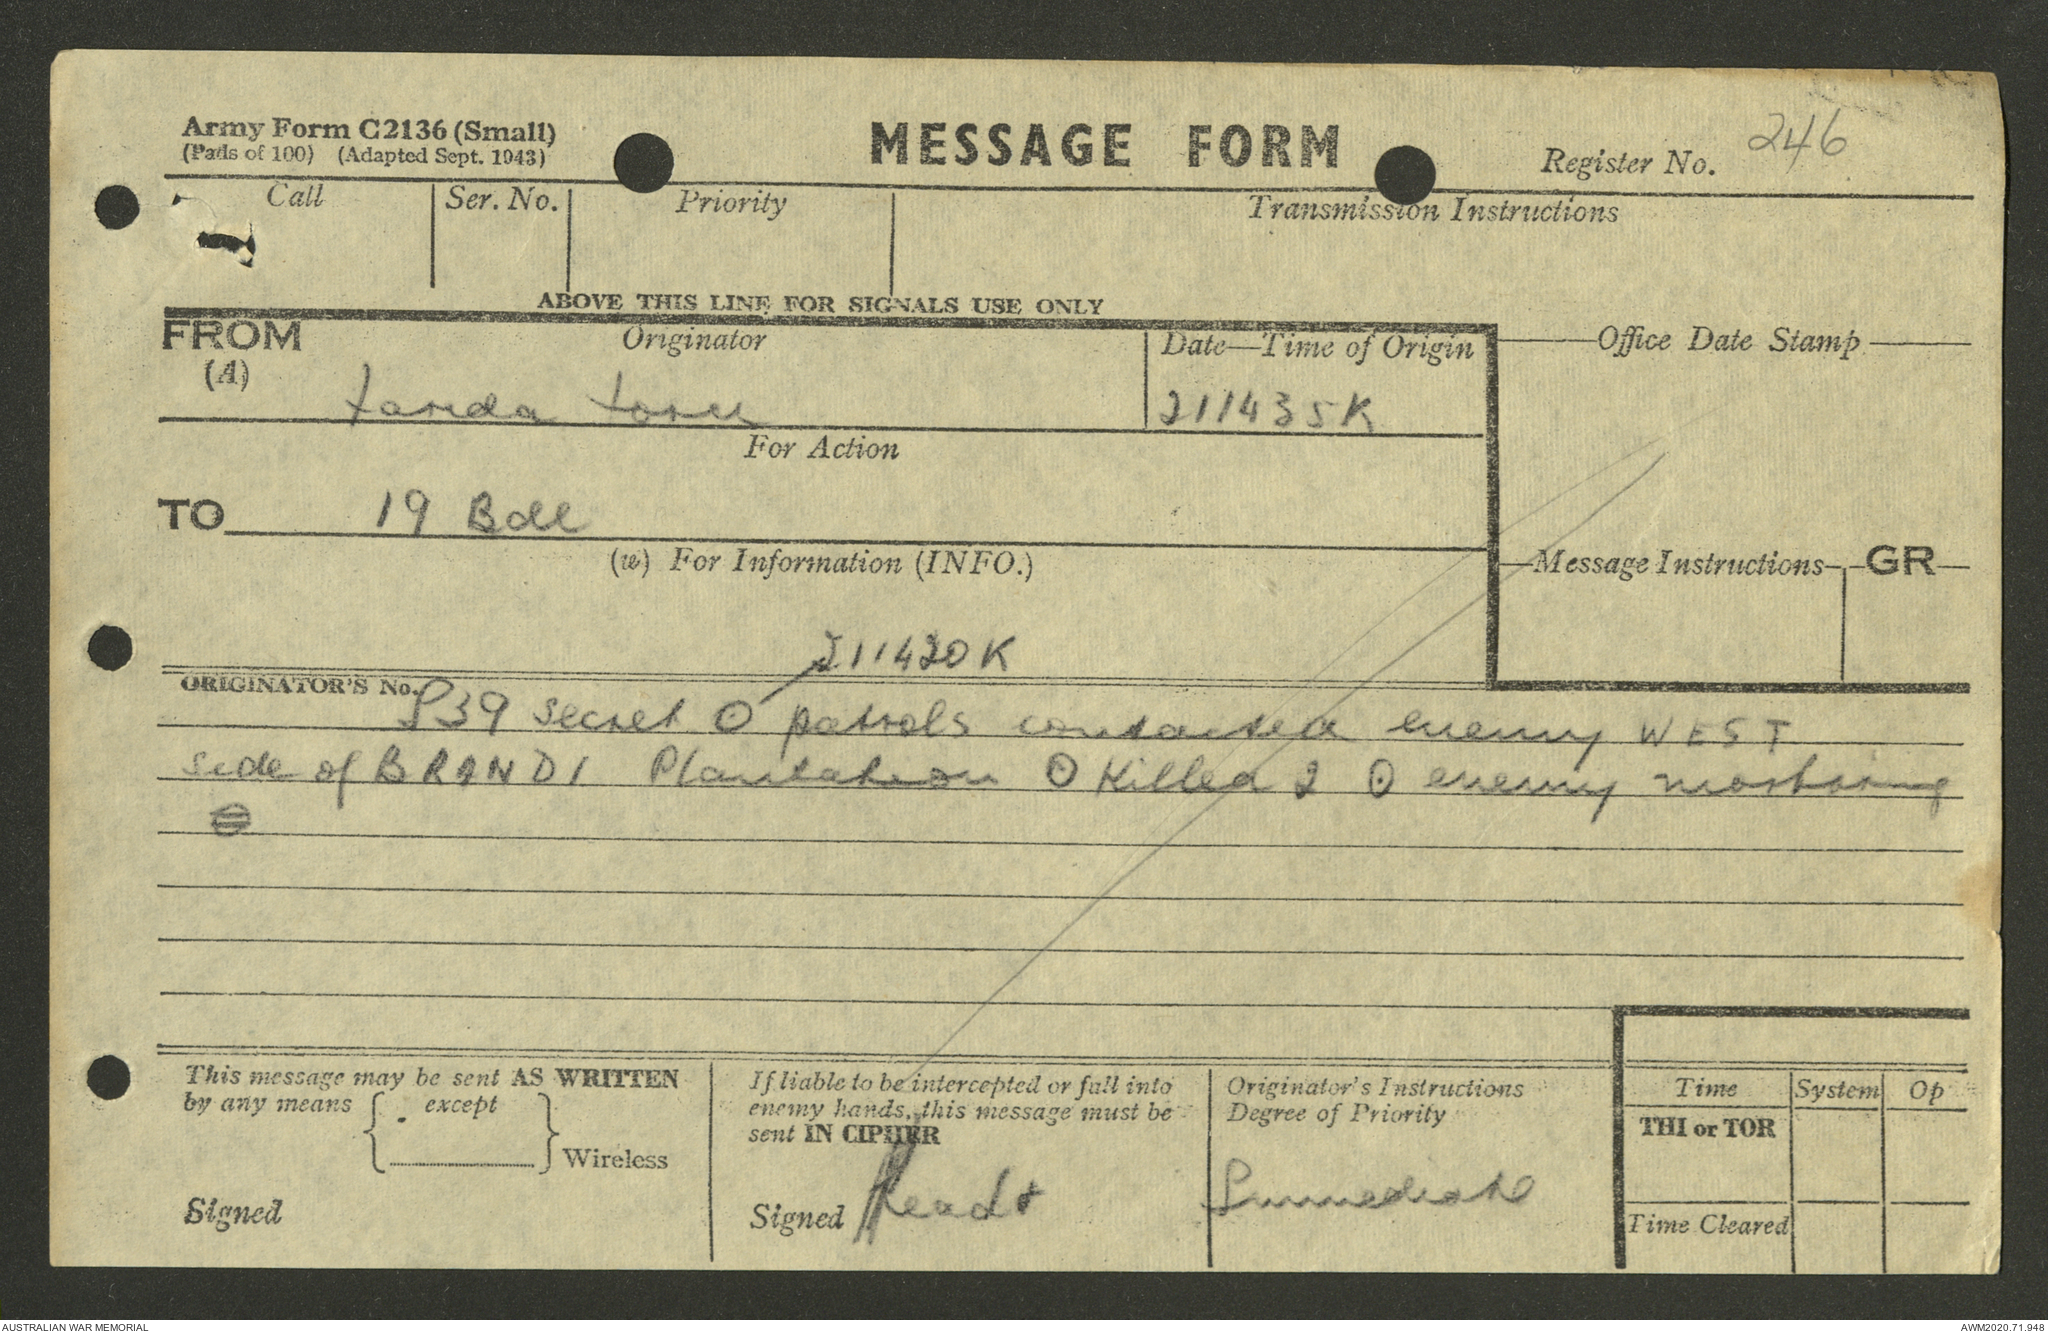 Army Form C2136 (Small)
(Pads of 100) (Adapted Sept. 1943)
MESSAGE FORM
Register No. 246
Call
Ser. No.
Priority
Transmission Instructions
ABOVE THIS LINE FOR SIGNALS USE ONLY
FROM
(A)
Originator
Date—Time of Origin
Office Date Stamp
farida force
211435K
For Action
TO 19 Bde
(w) For Information (INFO.)
Message Instructions
GR
211420K
ORIGINATOR'S No.
S39 secret O patrols contacted enemy WEST
side of BRANDI Plantation O Killed 2 O enemy mortaring
This message may be sent AS WRITTEN
by any means except
Wireless
Signed
If liable to be intercepted or fall into
enemy hands, this message must be
sent IN CIPHER
Signed
Originator's Instructions
Degree of Priority
Immediate
Time
System
Op
THI or TOR
Time Cleared
AUSTRALIAN WAR MEMORIAL
AWM2020.71.948